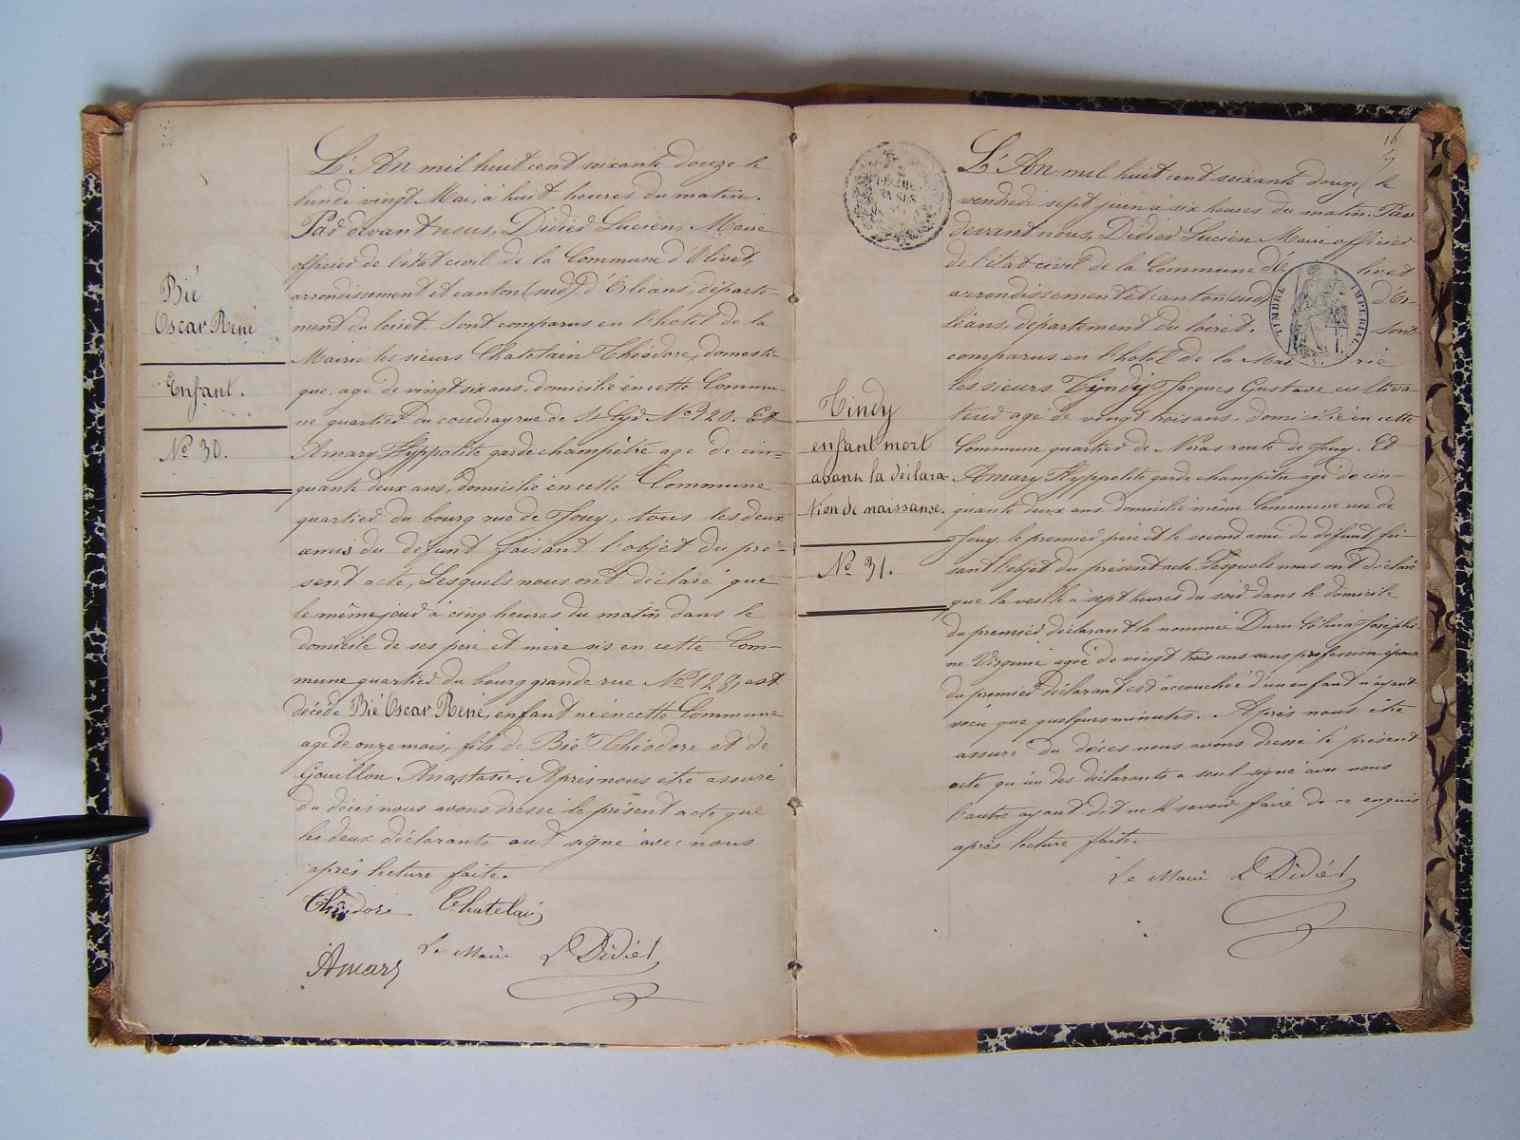 Bié
Oscar René
Enfant.
N° 30.
L'An mil huit cent soixante douze le
lundi vingt Mai, à huit heures du matin.
Par devant nous, Didier Lucien, Maire
officier de l'état civil de la Commune d'Olivet,
arrondissement et canton (sud) d'Orléans, départe-
ment du loiret. Sont comparus en l'hôtel de la
Mairie les sieurs Chatelain Théodore, domesti-
que, agé de vingt six ans, domicilié en cette Commu-
ne quartier du coudray rue de St Gyr N° 320. Et
Amary Hyppolite garde champêtre agé de cin-
quante deux ans, domicilié en cette Commune
quartier du bourg rue de Jouy, tous les deux
amis du défunt faisant l'objet du pré-
sent acte, Lesquels nous ont déclaré que
le même jour à cinq heures du matin dans le
domicile de ses père et mère sis en cette Com-
mune quartier du bourg grande rue N° 128, est
décédé Bié Oscar René, enfant né en cette Commune
agé de onze mois, fils de Bié Théodore et de
Gouillon Anastasie. Après nous être assuré
du décès nous avons dressé le présent acte que
les deux déclarants ont signé avec nous
après lecture faite.
Théodore Chatelain
Amary Le Maire L Didier
16
Tindy
enfant mort
avant la déclara
tion de naissance.
N° 31.
L'An mil huit cent soixante douze le
vendredi sept juin à six heures du matin. Par
devant nous, Didier Lucien Maire officier
de l'état civil de la Commune d'Olivet
arrondissement et canton (sud) d'Or-
léans, département du loiret. Sont
comparus en l'hôtel de la Mairie
les sieurs Tindy Jacques Gustave cultiva-
teur agé de vingt trois ans, domicilié en cette
Commune quartier de route de Jouy. Et
Amary Hyppolite garde champêtre agé de cin-
quante deux ans domicilié même Commune rue de
Jouy le premier père et le second ami du défunt fai-
sant l'objet du présent acte. Lesquels nous ont déclaré
que la veille à sept heures du soir dans le domicile
du premier déclarant la nommée Duru Joséphi-
ne Virginie agée de vingt trois ans sans profession épouse
du premier déclarant est accouchée d'un enfant n'ayant
vécu que quelques minutes. Après nous être
assuré du décès nous avons dressé le présent
acte qu'un des déclarants a seul signé avec nous
l'autre ayant dit ne le savoir faire de ce enquis
après lecture faite.
Le Maire L Didier
TIMBRE IMPERIAL